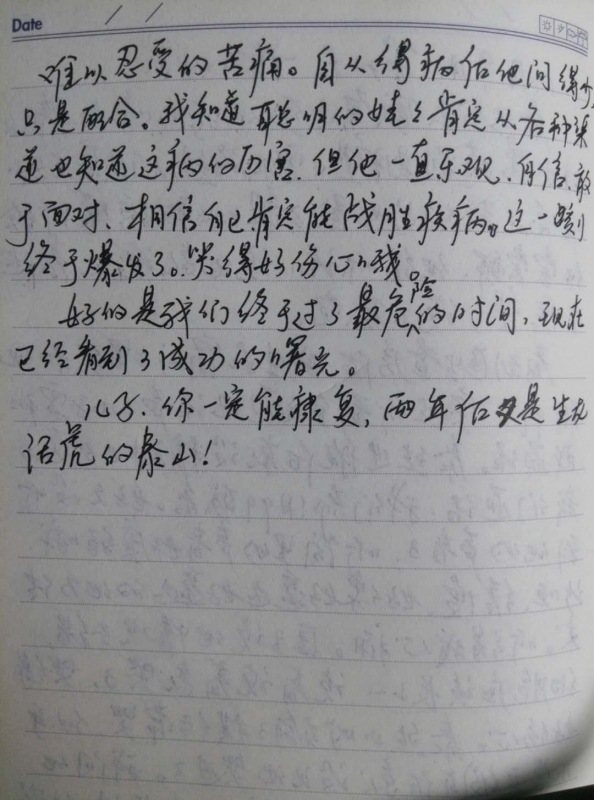 Date / /
难以忍受的苦痛。自从得病后他问得少,
只是配合。我知道聪明的娃娃肯定从各种渠
道也知道这病的厉害,但他一直乐观、自信、敢
于面对、相信自己肯定能战胜疾病。这一刻
终于爆发了。哭得好伤心哦。
好的是我们终于过了最危险的时间,现在
已经看到了成功的曙光。
儿子,你一定能康复,两年后又是生龙
活虎的泰山!